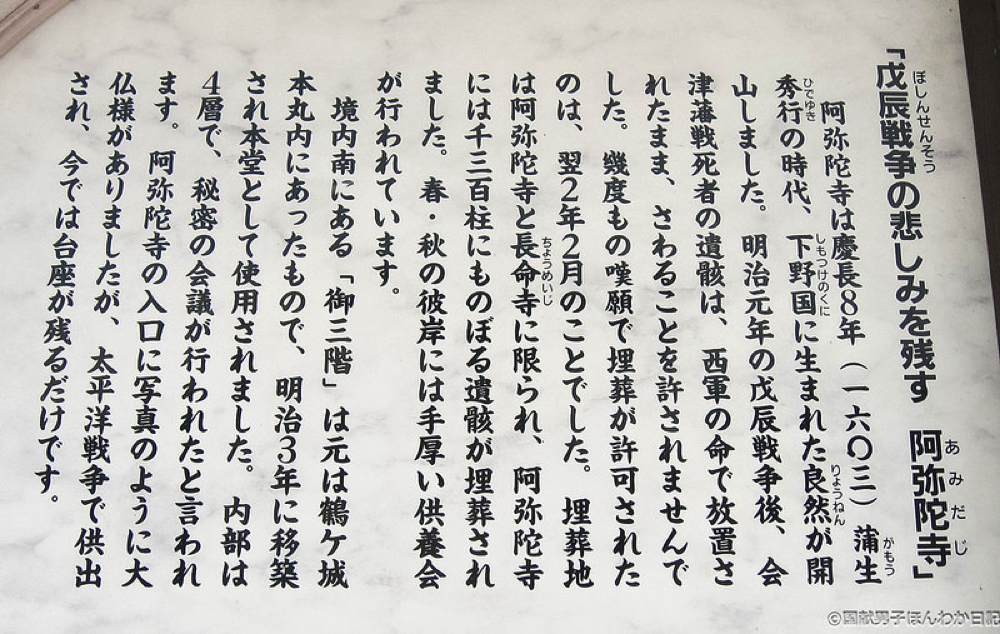 「戊辰戦争の悲しみを残す　阿弥陀寺」
ぼしんせんそう
あみだじ
阿弥陀寺は慶長8年（一六〇三）蒲生
がもう
秀行の時代、下野国に生まれた良然が開
ひでゆき
しもつけのくに
りょうねん
山しました。明治元年の戊辰戦争後、会
津藩戦死者の遺骸は、西軍の命で放置さ
れたまま、さわることを許されませんで
した。幾度もの嘆願で埋葬が許可された
のは、翌2年2月のことでした。埋葬地
は阿弥陀寺と長命寺に限られ、阿弥陀寺
ちょうめいじ
には千三百柱にものぼる遺骸が埋葬され
ました。春・秋の彼岸には手厚い供養会
が行われています。
境内南にある「御三階」は元は鶴ケ城
本丸内にあったもので、明治3年に移築
され本堂として使用されました。内部は
4層で、秘密の会議が行われたと言われ
ます。阿弥陀寺の入口に写真のように大
仏様がありましたが、太平洋戦争で供出
され、今では台座が残るだけです。
©国献男子ほんわか日記